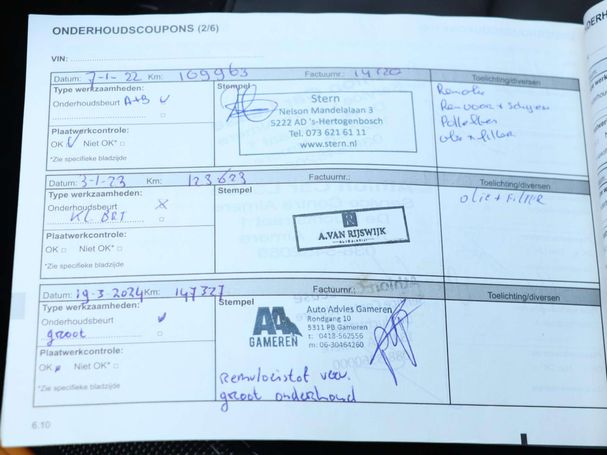 ONDERHOUDSCOUPONS (2/6)
VIN:
Datum: 7-1-22 Km: 109963 Factuurnr.:
Type werkzaamheden:
Onderhoudsbeurt A+B
Plaatwerkcontrole:
OK Niet OK*
*Zie specifieke bladzijde
Stempel
Stern
Nelson Mandelalaan 3
5222 AD 's-Hertogenbosch
Tel. 073 621 61 11
www.stern.nl
Toelichting/diversen
Pollenfilter
olie + filter
Datum: 3-1-23 Km: 123623 Factuurnr.:
Type werkzaamheden:
Onderhoudsbeurt
KL BRT
Plaatwerkcontrole:
OK Niet OK*
*Zie specifieke bladzijde
Stempel
R
A.VAN RIJSWIJK
Toelichting/diversen
olie + FILTER
Datum: 19-3-2024 Km: 147327 Factuurnr.:
Type werkzaamheden:
Onderhoudsbeurt
groot
Plaatwerkcontrole:
OK Niet OK*
*Zie specifieke bladzijde
Stempel
AA
GAMEREN
Auto Advies Gameren
Rondgang 10
5311 PB Gameren
t: 0418-562556
m: 06-30464260
Remvloeistof verv.
groot onderhoud
Toelichting/diversen
6.10